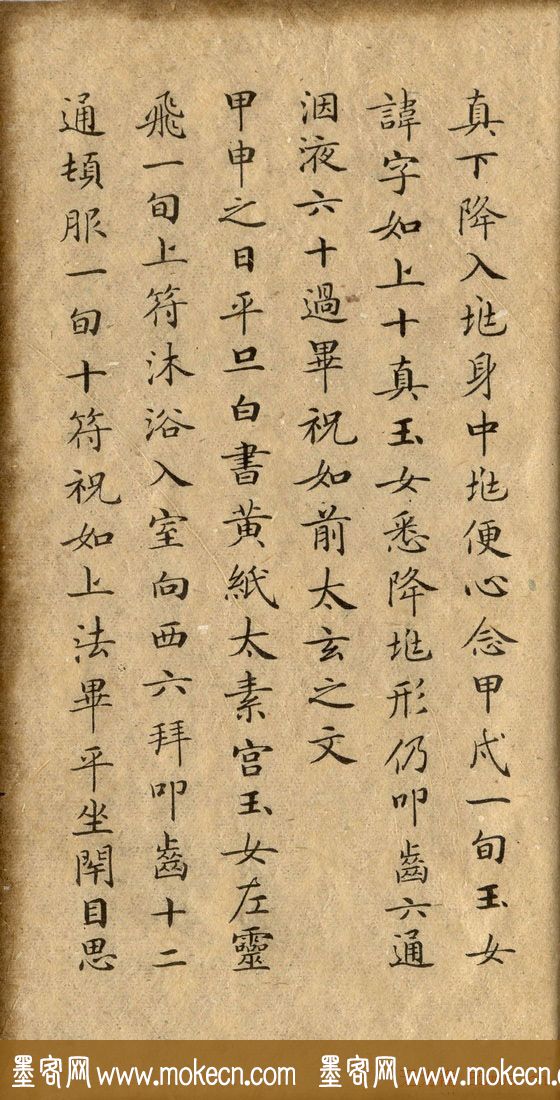 真下降入兆身中兆便心念甲戌一旬玉女
諱字如上十真玉女悉降兆形仍叩齒六通
洇液六十過畢祝如前太玄之文
甲申之日平旦白書黃紙太素宮玉女左靈
飛一旬上符沐浴入室向西六拜叩齒十二
通頓服一旬十符祝如上法畢平坐閇目思
墨客网 www.mokecn.com 墨客网 www.mokecn.com